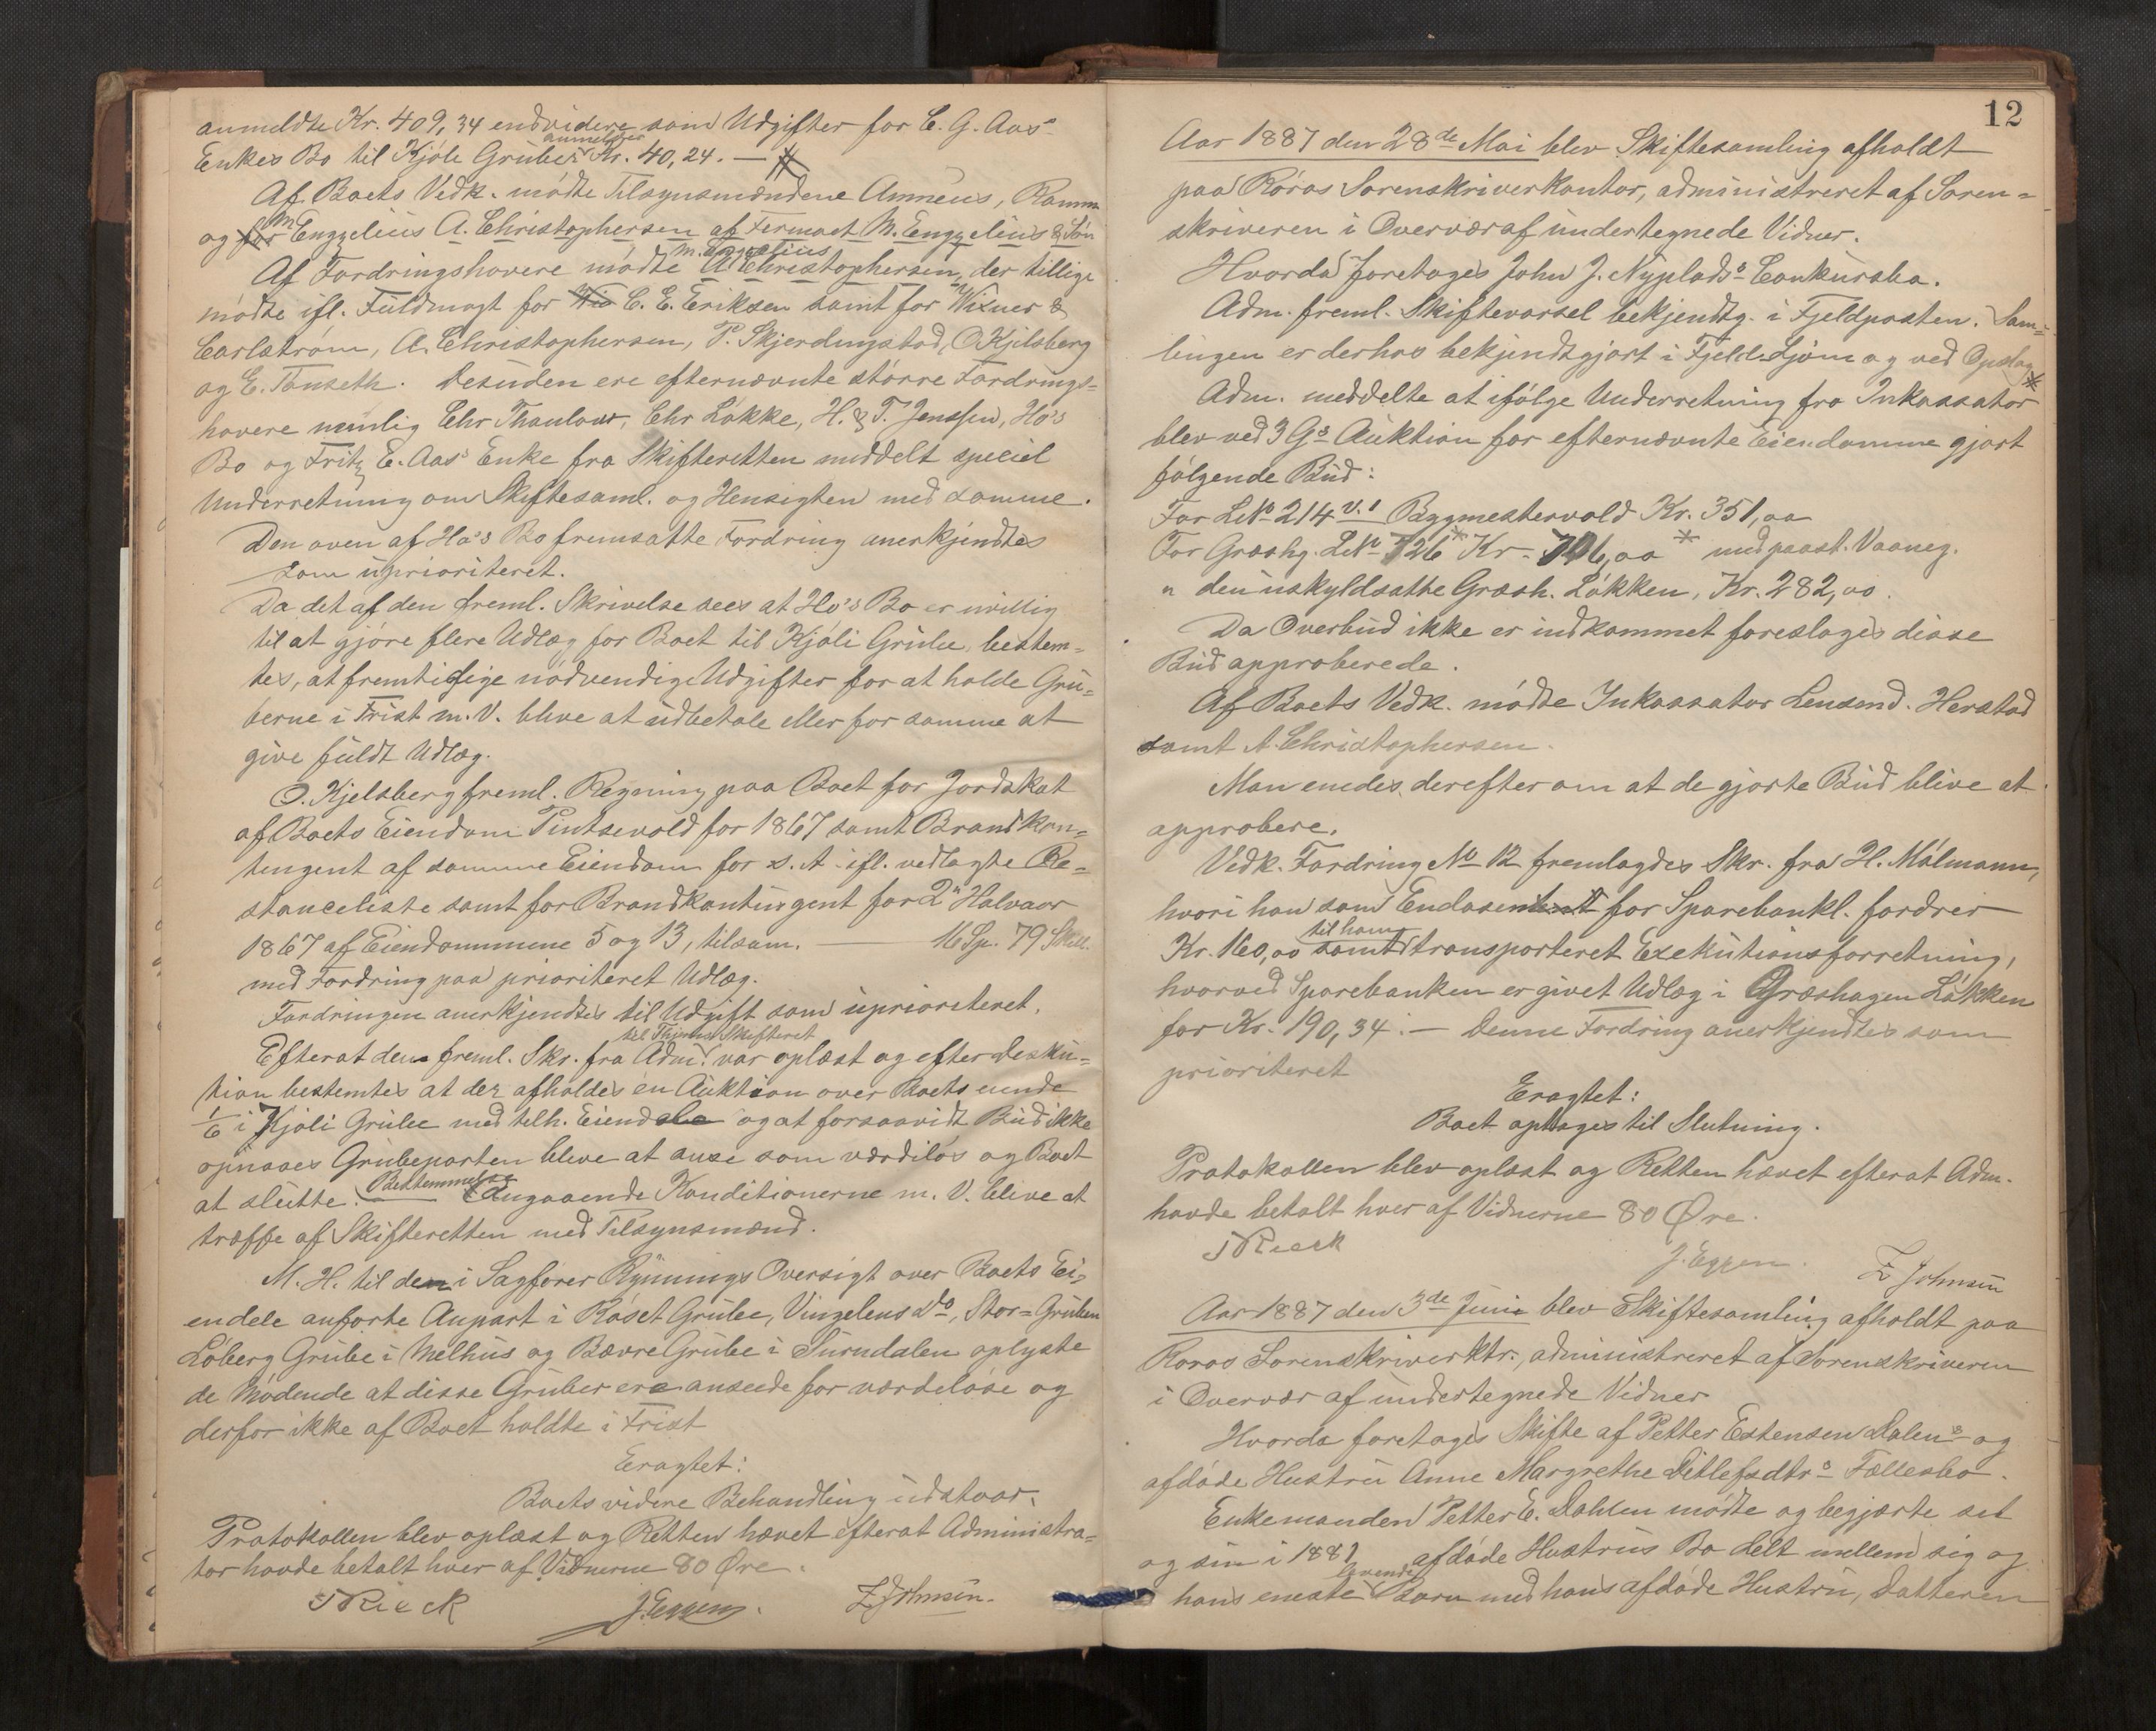 anmeldte Kr. 409,34 endvidere som Udgifter for C. G. Aas's
Enkes Bo til Kjöli Gruber anmeldes Kr. 40,24. —
Af Boets Vedk. mödte Tilsynsmændene Amnéus, Ramm
og for M Engzelius A. Christophersen af Firmaet M. Engzelius & Sön
Af Fordringshavere mödte M. Engzelius A. Christophersen, der tillige
mödte ifl. Fuldmagt for C. E. Eriksen samt for Wixner &
Carlström, A. Christophersen, P. Skjerdingstad, O Kjelsberg
og E. Tönseth. Desuden ere efternævnte större Fordrings-
havere nemlig Chr Thaulow, Chr Lökke, H. & T. Jenssen, Ho's
Bo og Fritz E. Aas's Enke fra Skifteretten meddelt speciel
Underretning om Skiftesaml. og Hensigten med samme.
Den oven af Ho's Bo fremsatte Fordring anerkjendtes
som uprioriteret.
Da det af den freml. Skrivelse sees at Ho's Bo er uvillig
til at gjöre flere Udlæg for Boet til Kjöli Grube, bestem-
tes, at fremtidige nödvendige Udgifter for at holde Gru-
berne i Frist m. V. blive at udbetale eller for samme at
give fuldt Udlæg.
O. Kjelsberg freml. Regning paa Boet for Jordskat
af Boets Eiendom Tintsevold for 1867 samt Brandkon-
tingent af samme Eiendom for s. A. ifl. vedlagte Re-
stanceliste samt for Brandkontingent for 2' Halvaar
1867 af Eiendommene 5 og 13, tilsam. — 16 Sp. 79 Skill.
med Fordring paa prioriteret Udlæg.
Fordringen anerkjendtes til Udgift som uprioriteret.
Efterat den freml. Skr. fra Adm. til Skifteret var oplæst og efter Disku-
tion bestemtes at der afholdes en Auktion over Boets eiende
1/6 i Kjöli Grube med tilh. Eiendele og at forsaavidt Bud ikke
opnaaes Grubeparten bleve at anse som værdilös og Boet
at slutte. Bestemmelse Angaaende Konditionerne m. V. blive at
træffe af Skifteretten med Tilsynsmænd.
M. H. til den i Sagförer Rynnings Oversigt over Boets Ei-
endele anförte Anpart i Röset Grube, Vingelens do, Stor-Gruben
Löberg Grube i Melhus og Bævre Grube i Surndalen oplyste
de Mödende at disse Gruber ere ansede for værdelöse og
derfor ikke af Boet holdte i Frist
Eragtet:
Boets videre Behandling udstaar.
Protokollen blev oplæst og Retten hævet efterat Administra-
tor havde betalt hver af Vidnerne 80 Øre.
TRieck J. Eggen. Z Johnsen.
12
Aar 1887 den 28de Mai blev Skiftesamling afholdt
paa Röros Sorenskriverkontor, administreret af Soren-
skriveren i Overvær af undertegnede Vidner.
Hvorda foretages John J. Nyplads's Conkursbo.
Adm. freml. Skiftevarsel bekjendtg. i Fjeldposten. Sam-
lingen er derhos bekjendtgjort i Fjeld-Ljom og ved Opslag
Adm. meddelte at ifölge Underretning fra Inkassator
blev ved 3 Gs Auktion for efternævnte Eiendomme gjort
fölgende Bud:
For LNo 214 v. 1 Bygmestervold Kr. 351,00
For Græshg. LNo 726 Kr. 706,00 med paast. Vaaneg.
" den uskyldsatte Græsh. Lökken, Kr. 282,00.
Da Overbud ikke er indkommet foreslages disse
Bud approberede.
Af Boets Vedk. mödte Inkassator Lensmd. Herstad
samt A. Christophersen.
Man enedes derefter om at de gjorte Bud blive at
approbere.
Vedk. Fordring No 12 fremlagdes Skr. fra H. Mölmann,
hvori han som Endosent for Sparebankl. fordrer
Kr. 160,00 samt til ham transporteret Exekutionsforretning,
hvorved Sparebanken er givet Udlæg i Græshagen Lökken
for Kr. 190,34. — Denne Fordring anerkjendtes som
prioriteret
Eragtet:
Boet optages til Slutning.
Protokollen blev oplæst og Retten hævet efterat Adm.
havde betalt hver af Vidnerne 80 Øre.
TRieck
J. Eggen. Z Johnsen
Aar 1887 den 3de Juni blev Skiftesamling afholdt paa
Röros Sorenskriverktr., administreret af Sorenskriveren
i Overvær af undertegnede Vidner
Hvorda foretages Skifte af Petter Estensen Dalens og
afdöde Hustru Anne Margrethe Ditlefsdtrs Fællesbo.
Enkemanden Petter E. Dahlen mödte og begjærte sit
og sin i 1881 afdöde Hustrus Bo delt mellem sig og
hans eneste levende Barn med hans afdöde Hustru, Datteren